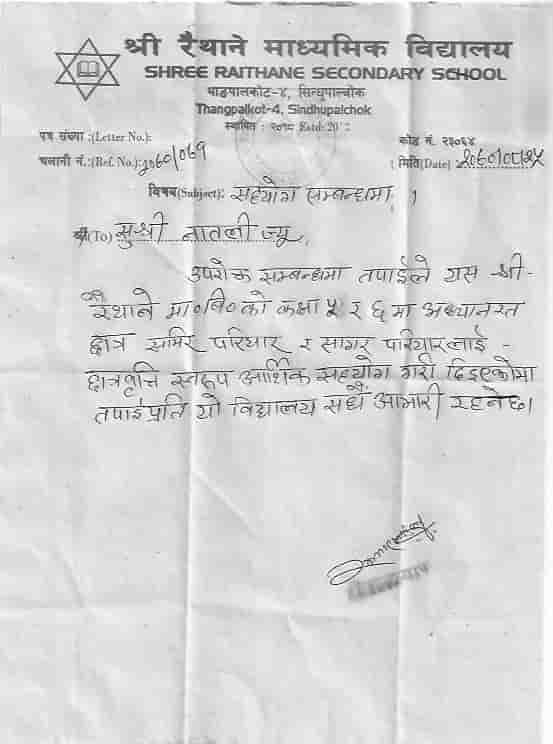 श्री रैथाने माध्यमिक विद्यालय
SHREE RAITHANE SECONDARY SCHOOL
थाङपालकोट-४, सिन्धुपाल्चोक
Thangpalkot-4, Sindhupalchok
स्थापित : २०१८ Estd: 20
पत्र संख्या :(Letter No.):
कोड नं. २३०६४
चलानी नं.:(Ref. No.): २०६०/०६१
मिति(Date)
विषय(Subject): सहयोग सम्बन्धमा ।
श्री(To) सुश्री नातली ज्यू,
उपरोक्त सम्बन्धमा तपाईले यस श्री-
रैथाने मा०बि०को कक्षा ५ र ६ मा अध्यानरत
छात्र समिर परियार र सागर परियारलाई -
छात्रवृत्ति स्वरूप आर्थिक सहयोग गरी दिएकोमा
तपाईप्रति यो विद्यालय सधैं आभारी रहनेछ।